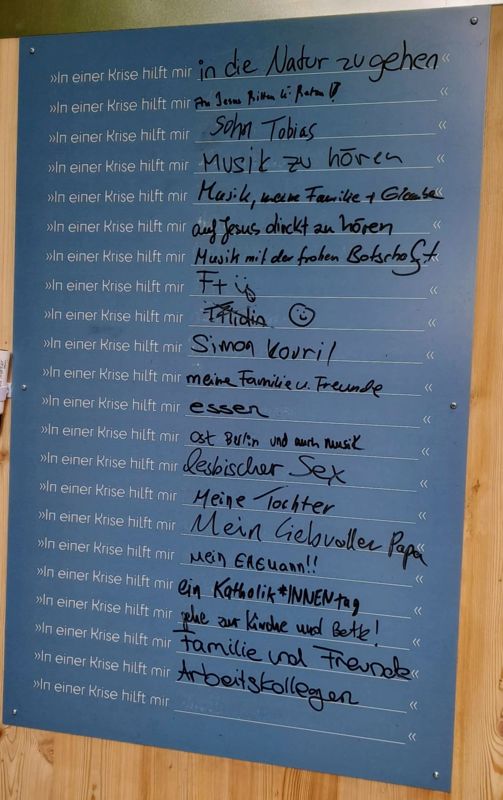 »In einer Krise hilft mir in die Natur zu gehen«
»In einer Krise hilft mir Jesus Bitten u.«
»In einer Krise hilft mir Sohn Tobias«
»In einer Krise hilft mir Musik zu hören«
»In einer Krise hilft mir Musik, meine Familie + Glaube«
»In einer Krise hilft mir auf Jesus direkt zu hören«
»In einer Krise hilft mir Musik mit der frohen Botschaft«
»In einer Krise hilft mir«
»In einer Krise hilft mir ☺«
»In einer Krise hilft mir Simon Kouril«
»In einer Krise hilft mir meine Familie u. Freunde«
»In einer Krise hilft mir essen«
»In einer Krise hilft mir Ost Berlin und auch musik«
»In einer Krise hilft mir lesbischer Sex«
»In einer Krise hilft mir Meine Tochter«
»In einer Krise hilft mir Mein liebvoller Papa«
»In einer Krise hilft mir Mein EHEMann!!«
»In einer Krise hilft mir ein Katholik*INNENtag«
»In einer Krise hilft mir gehe zur Kirche und Bete!«
»In einer Krise hilft mir Familie und Freunde«
»In einer Krise hilft mir Arbeitskollegen«
»In einer Krise hilft mir«